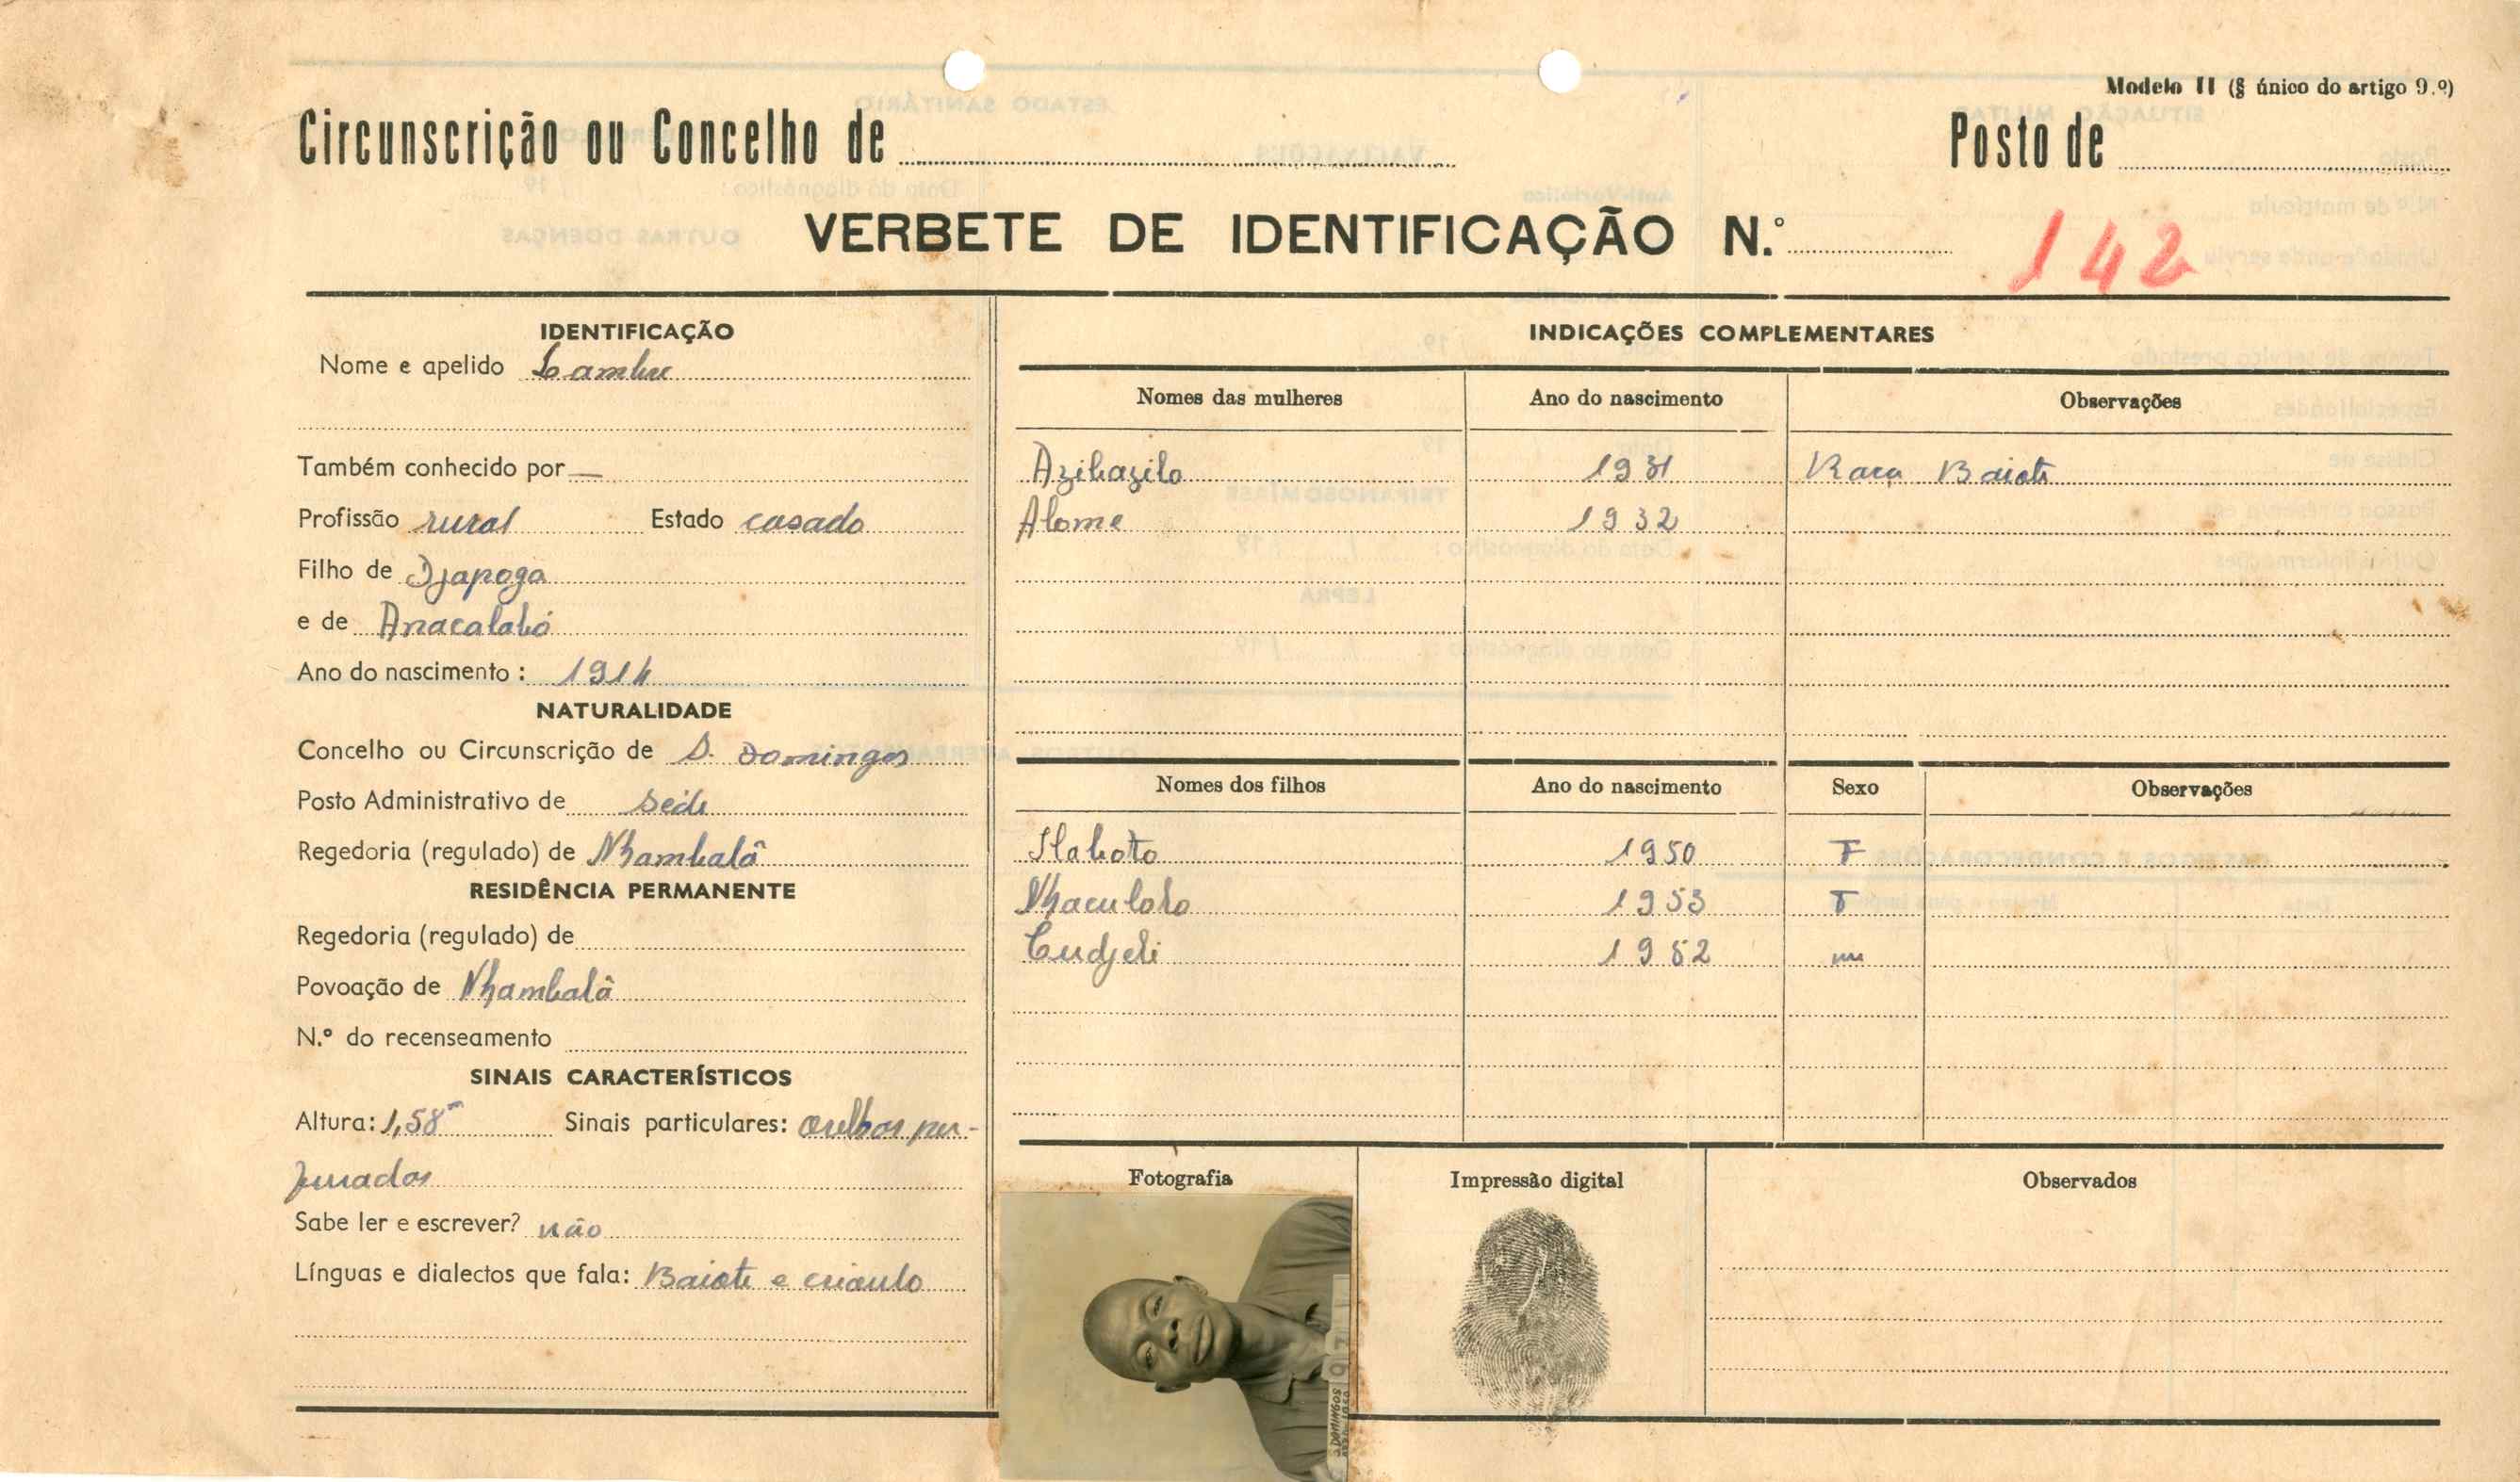 Modelo II (§ único do artigo 9.º)
Circunscrição ou Concelho de
Posto de
VERBETE DE IDENTIFICAÇÃO N.º
142
IDENTIFICAÇÃO
Nome e apelido
Também conhecido por —
Profissão rural Estado casado
Filho de Djapoga
e de Anacalabó
Ano do nascimento: 1914
NATURALIDADE
Concelho ou Circunscrição de S. Domingos
Posto Administrativo de Sede
Regedoria (regulado) de Nhambalã
RESIDÊNCIA PERMANENTE
Regedoria (regulado) de
Povoação de Nhambalã
N.º do recenseamento
SINAIS CARACTERÍSTICOS
Altura: 1,58 Sinais particulares: orelhas per-
furadas
Sabe ler e escrever? não
Línguas e dialectos que fala: Baiote e crioulo
INDICAÇÕES COMPLEMENTARES
Nomes das mulheres Ano do nascimento Observações
Azibazilo 1931 Raça Baiote
Alome 1932
Nomes dos filhos Ano do nascimento Sexo Observações
1950 F
1953 F
Cudjeli 1952 m
Fotografia Impressão digital Observados
DOMINGOS